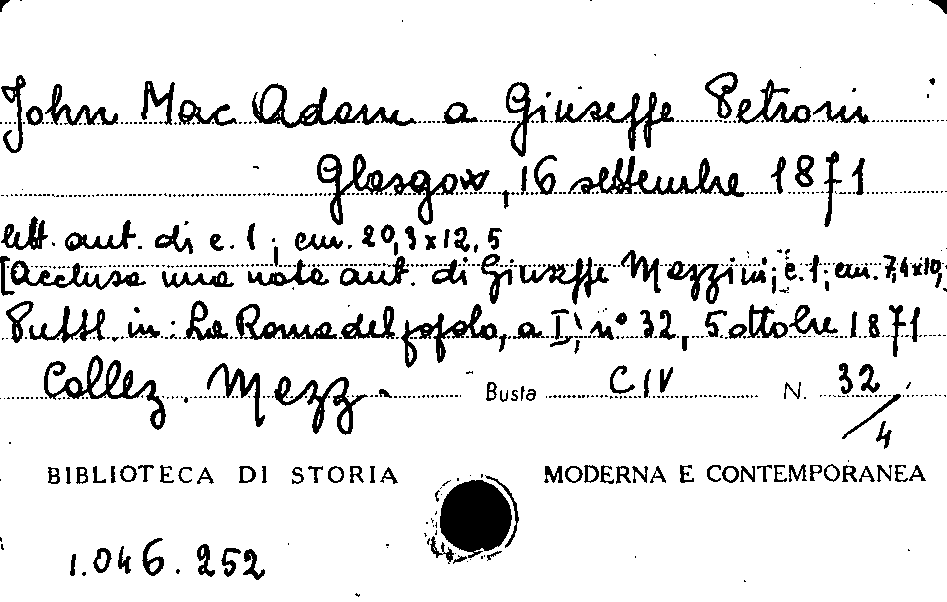 John Mac Adam a Giuseppe Petroni
Glasgow, 16 settembre 1871
lett. aut. di c. 1; cm. 20,3x12,5
[Acclusa una nota aut. di Giuseppe Mazzini; c. 1; cm. 7,4x10,
Pubbl. in: La Roma del popolo, a I, n° 32, 5 ottobre 1871
Collez. Mazz. Busta CIV N. 32/4
BIBLIOTECA DI STORIA MODERNA E CONTEMPORANEA
1.046.252